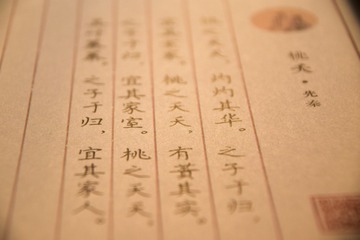 桃夭·先秦
桃之夭夭，灼灼其华。之子于归，
宜其室家。桃之夭夭。有蕡其实。
之子于归，宜其家室。桃之夭夭，
其叶蓁蓁。之子于归，宜其家人。